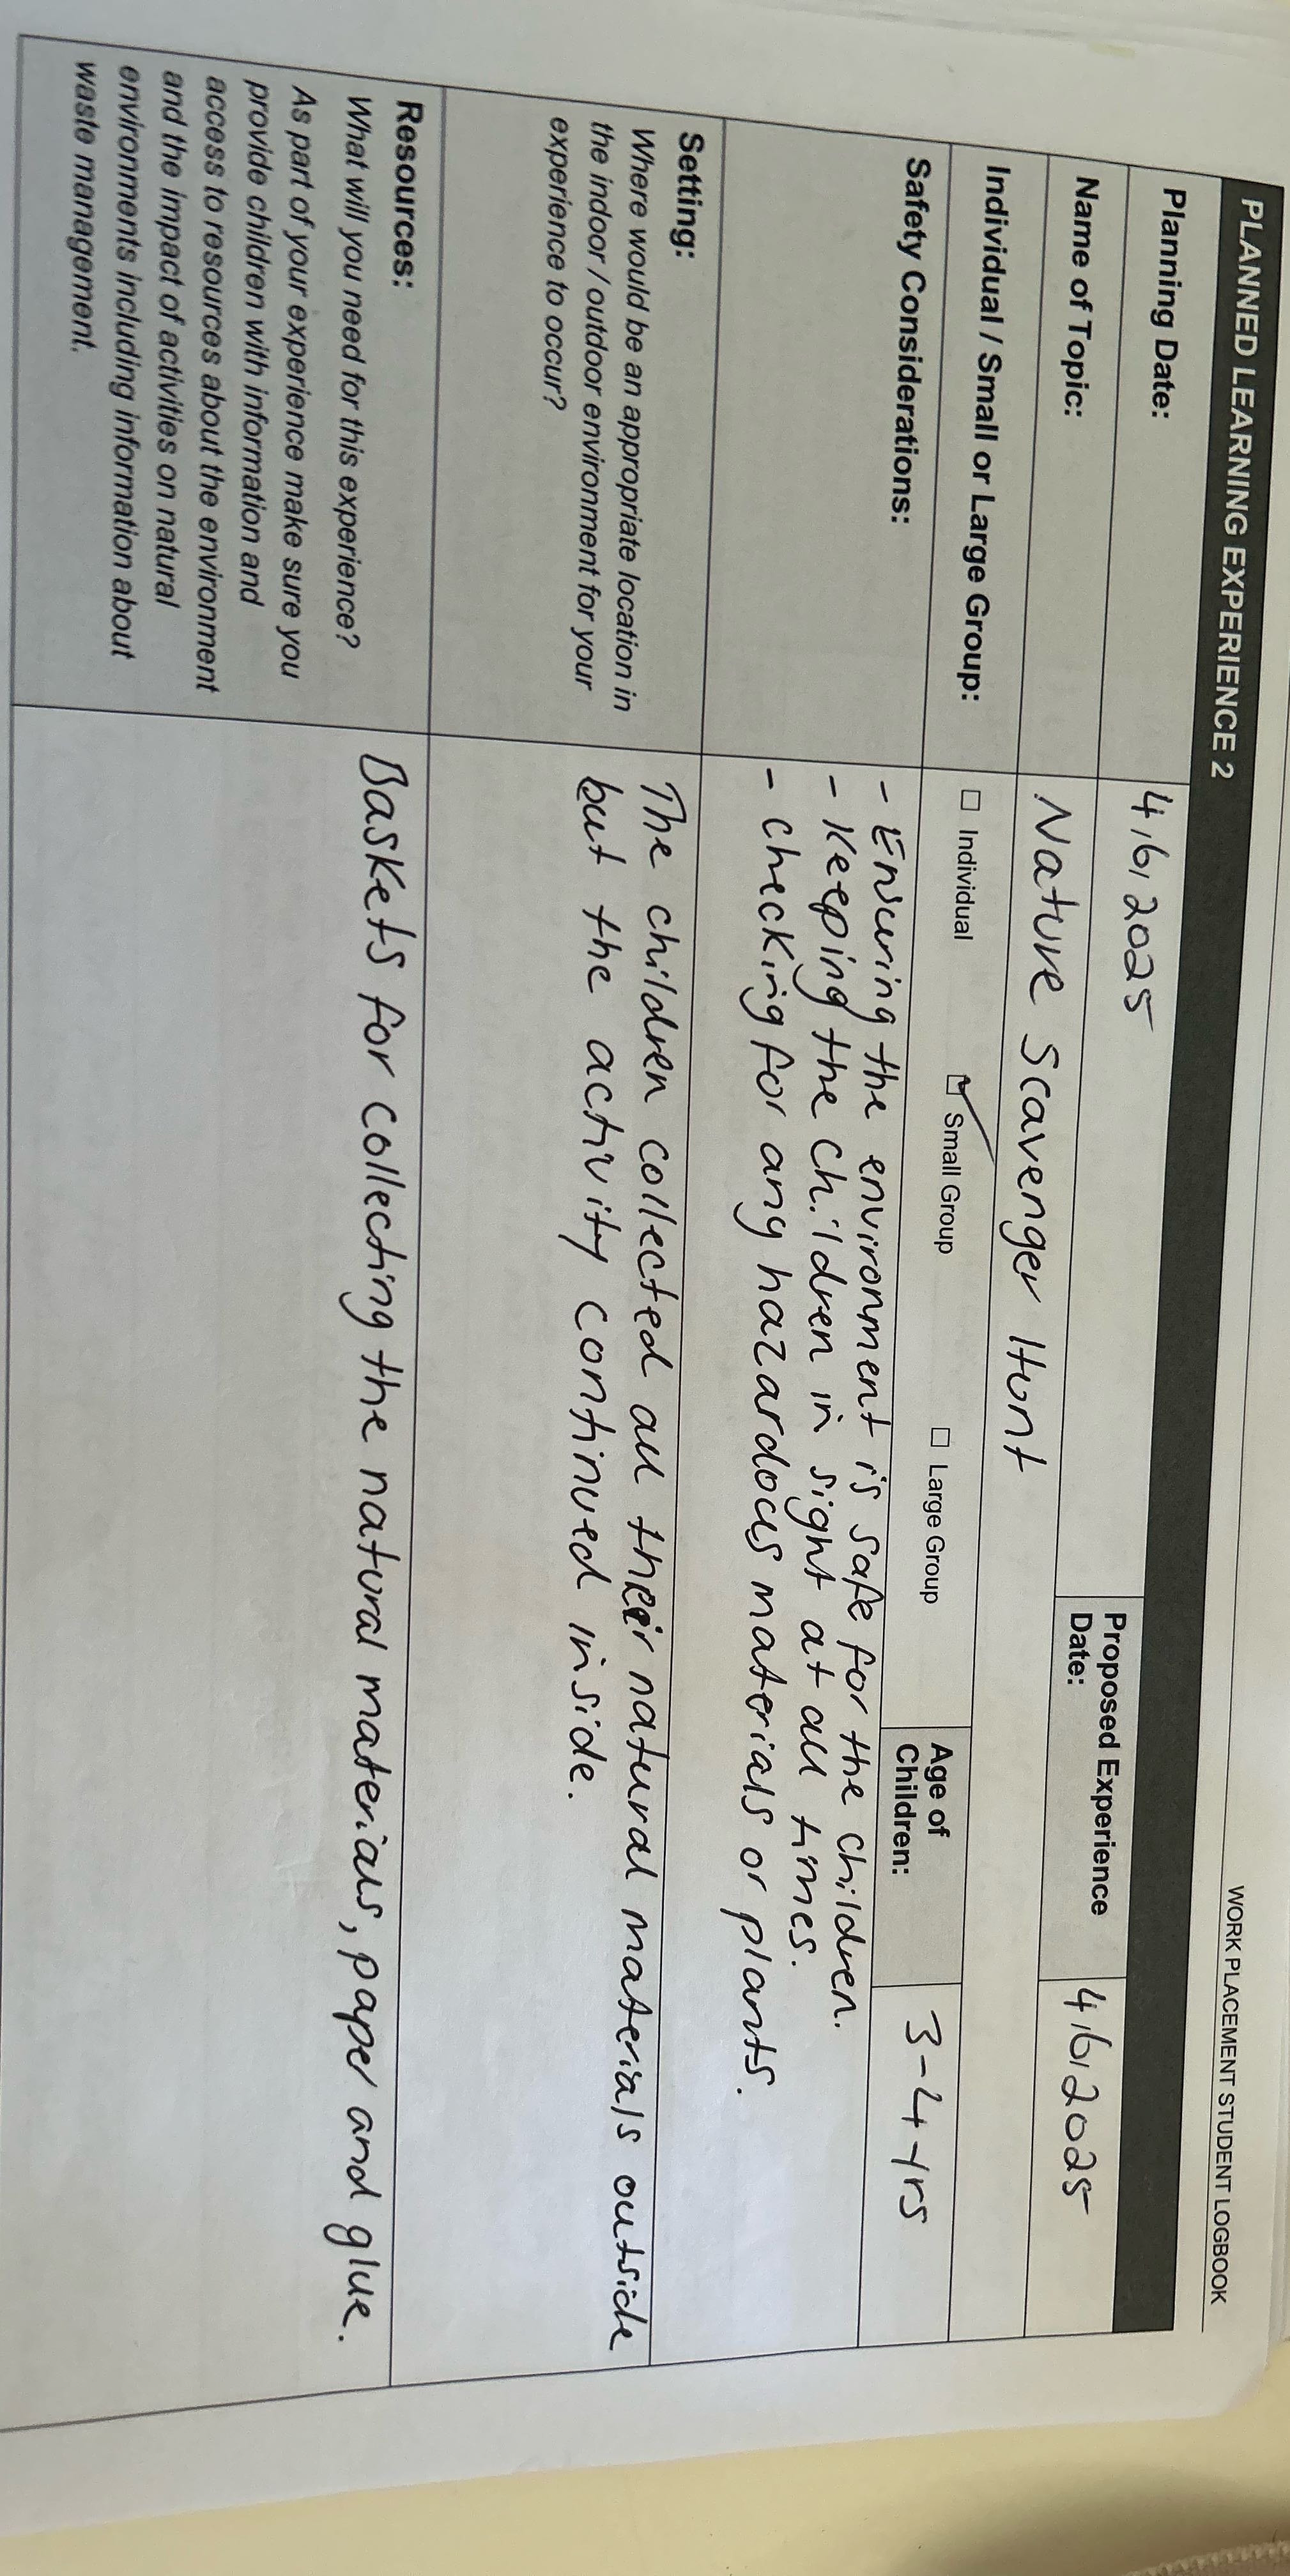 WORK PLACEMENT STUDENT LOGBOOK
PLANNED LEARNING EXPERIENCE 2
Planning Date:
4/6/2025
Proposed Experience
Date:
4/6/2025
Name of Topic:
Nature Scavenger Hunt
Individual / Small or Large Group:
☐ Individual
☑ Small Group
☐ Large Group
Age of
Children:
3-4 yrs
Safety Considerations:
- Ensuring the environment is safe for the children.
- Keeping the children in sight at all times.
- checking for any hazardous materials or plants.
Setting:
Where would be an appropriate location in
the indoor / outdoor environment for your
experience to occur?
The children collected all their natural materials outside
but the activity continued inside.
Resources:
What will you need for this experience?
As part of your experience make sure you
provide children with information and
access to resources about the environment
and the impact of activities on natural
environments including information about
waste management.
Baskets for collecting the natural materials, paper and glue.